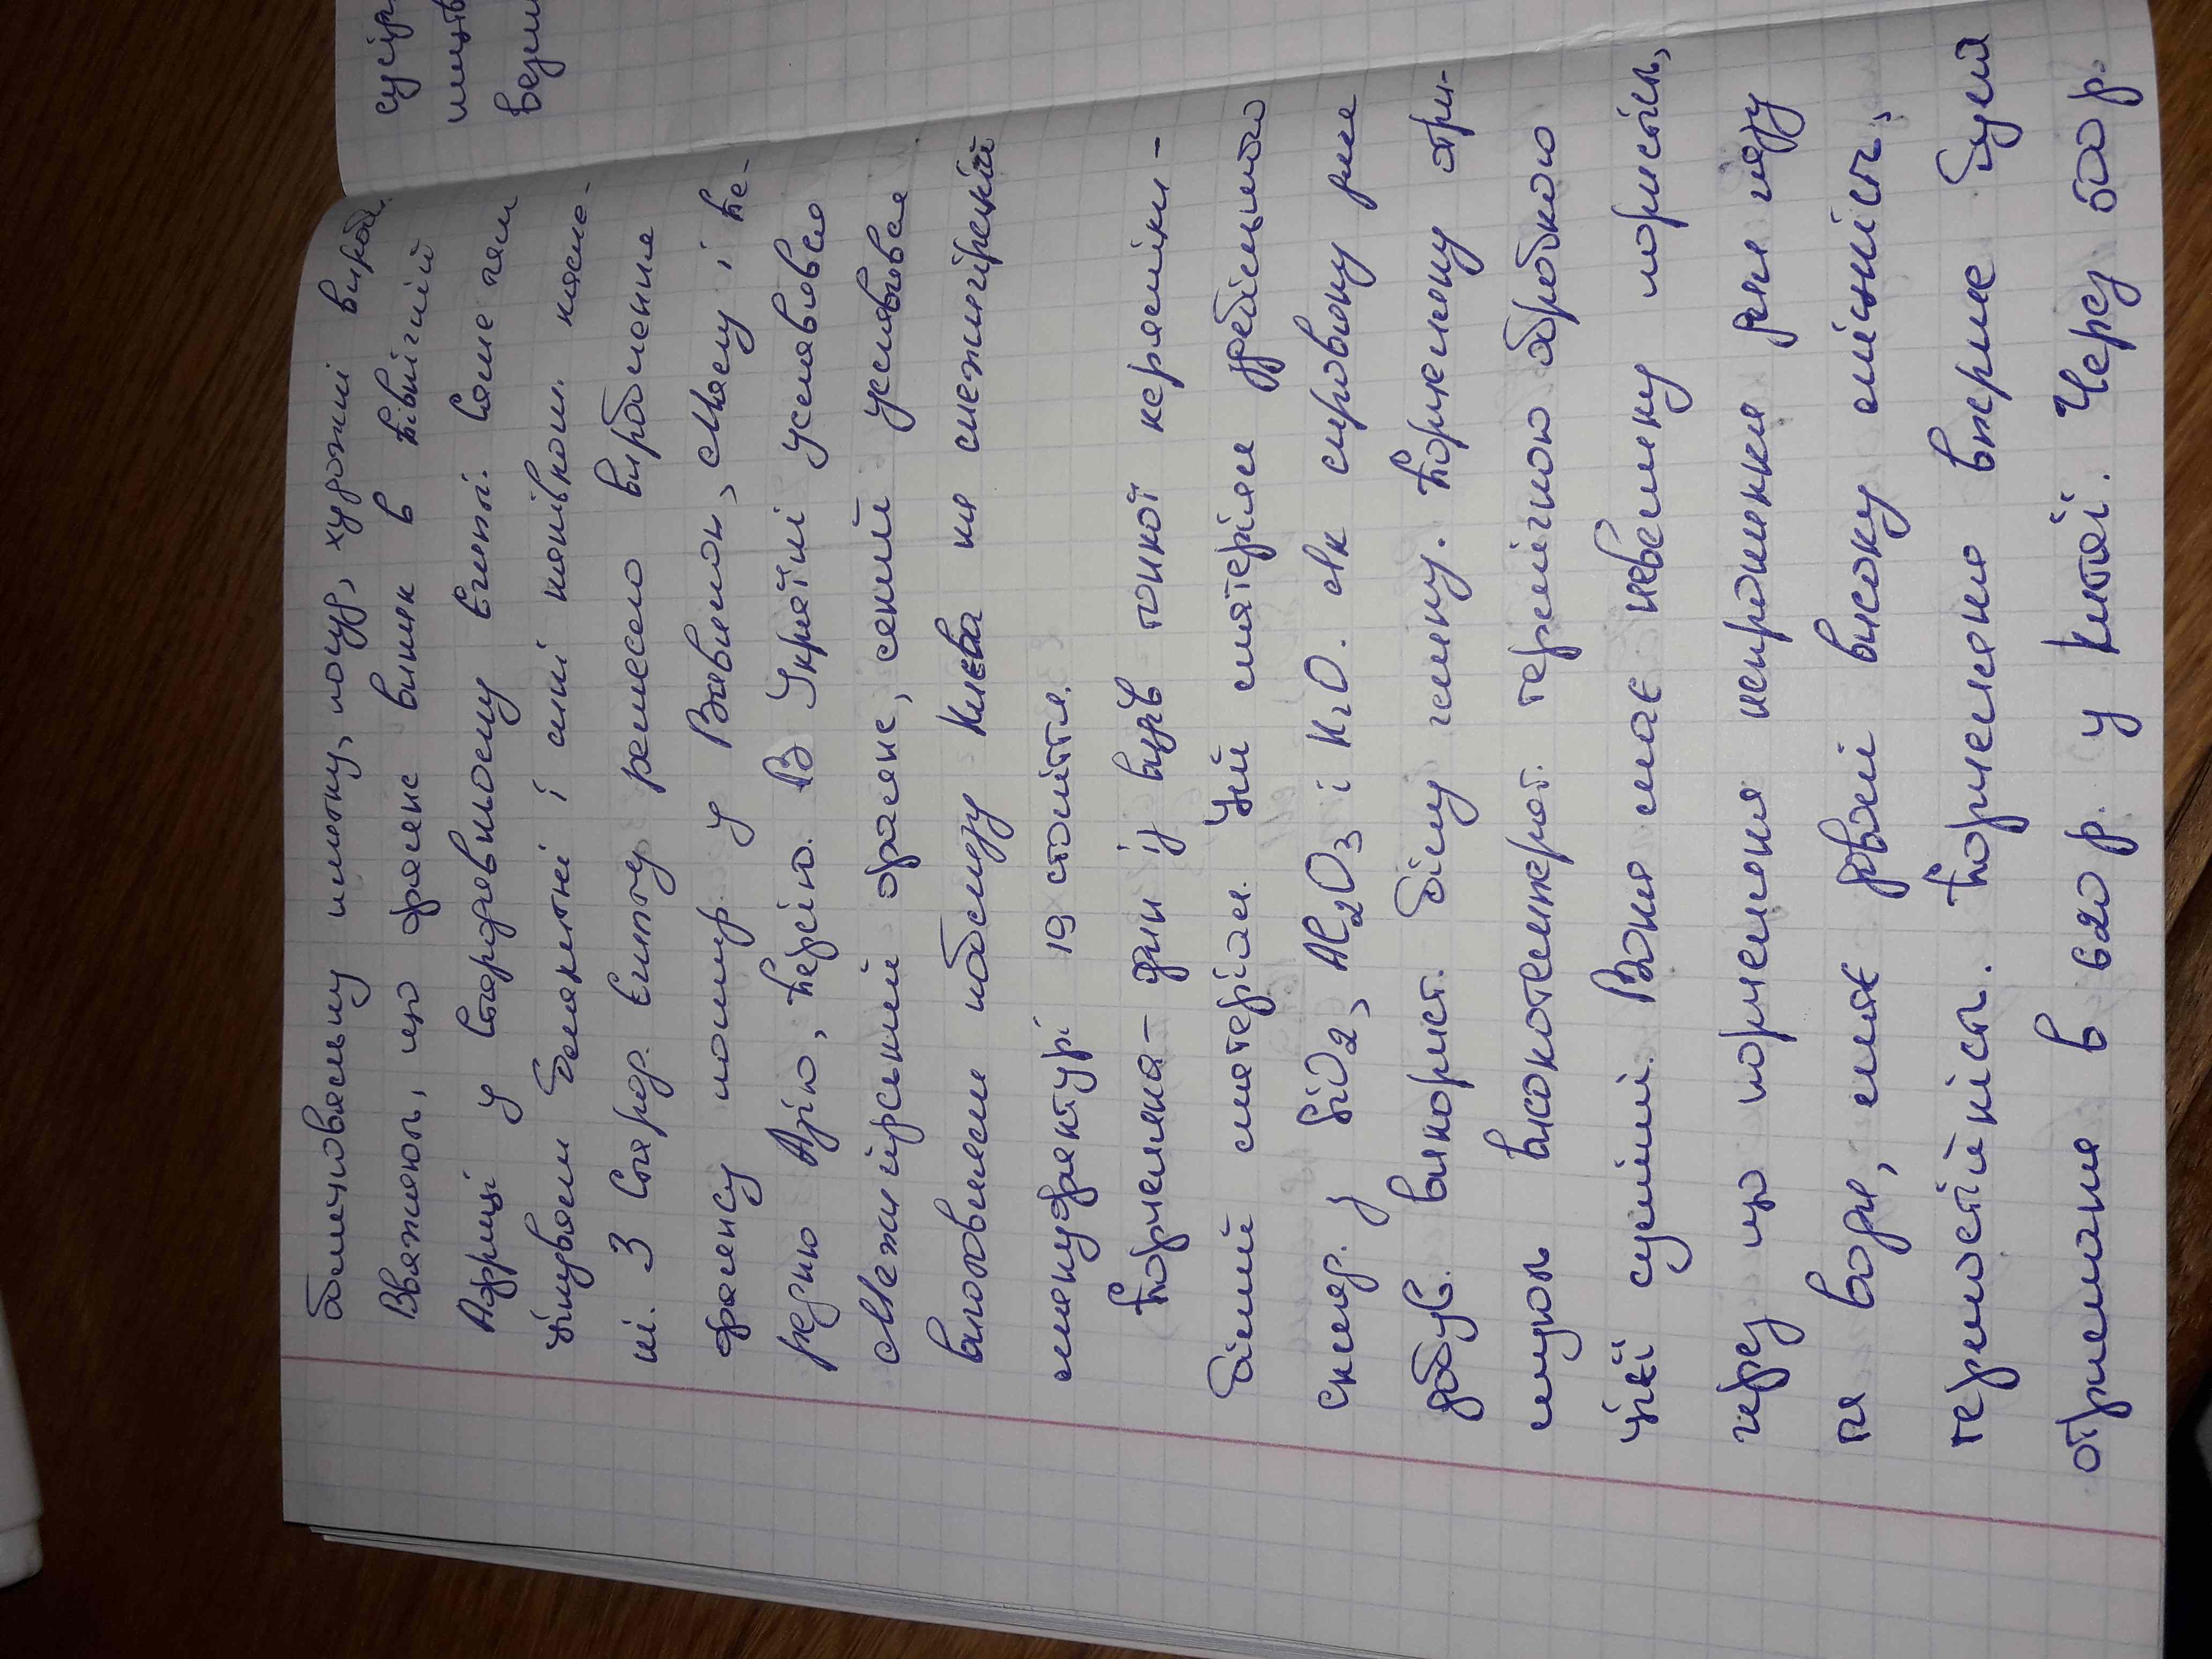 блицювальну плитку, посуд, художні вироб.
Вважають, що фаянс виник в Північній
Африці у Стародавньому Єгипті. Саме там
цінували блакитні і сині напівкош. камен-
ні. З Старод. Єгипту ремесло вироблення
фаянсу пошир. у Вавилон, Малу і Пе-
редню Азію, Персію. В Україні уславився
Межигірський фаянс, який уславився
виготовлен поблизу Києва на межигірській
мануфактурі 19 століття.
Порцеляна- один із видів тонкої кераміки-
білий матеріал. Цей матеріал здебільшого
склад. з SiO2, Al2O3 і K2O. Як сировину для
добув. використ. білу глину. Порцеляну отри-
мують високотемперат. термічною обробкою
цієї суміші. Вона має невелику пористість,
через що порцеляна непроникна для газу
та води, має доволі високу міцність,
термостійкість. Порцеляна вперше була
отримана в 620 р. у Китаї. Через 500 р.
сусір
мист
веди